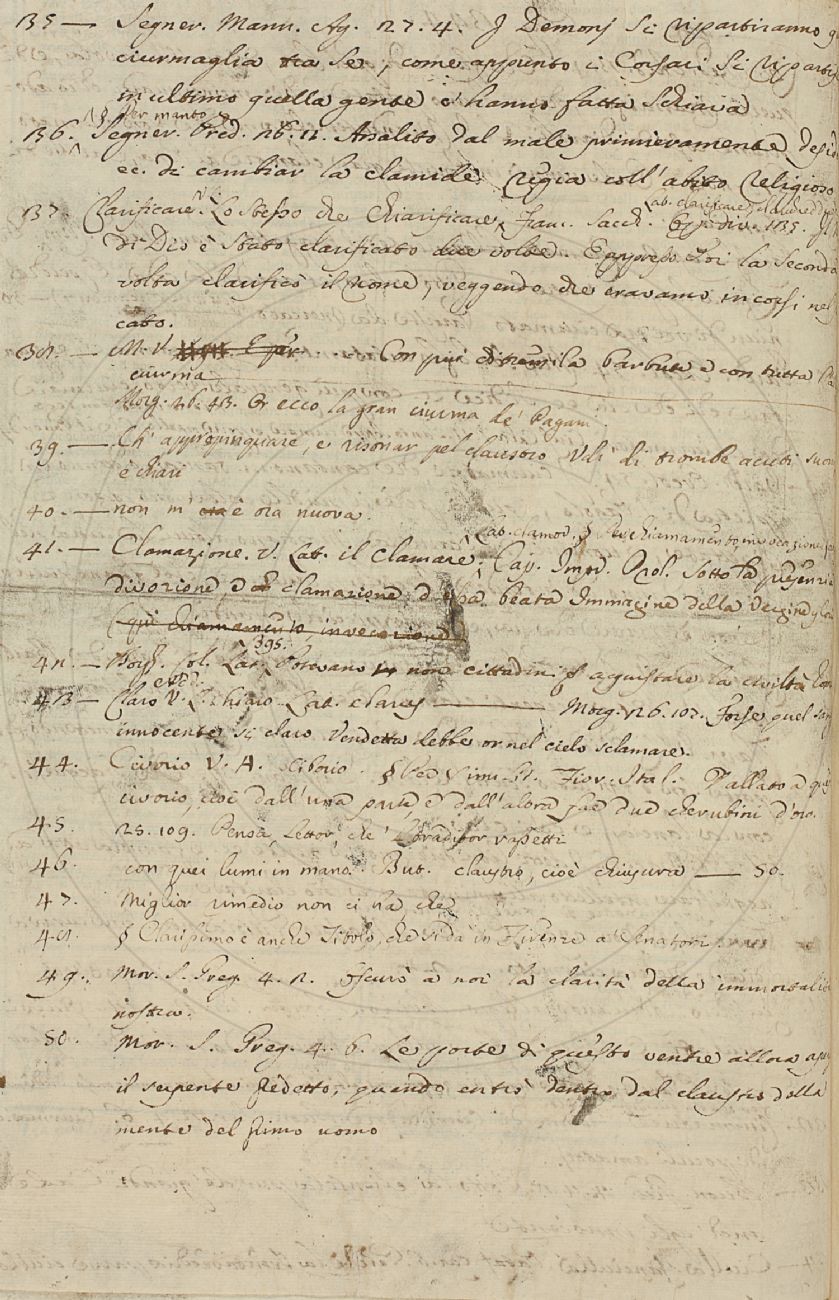 135 — Segner. Mann. Ag. 27. 4. I Demonj si ripartiranno
ciurmaglia tra se, come appunto i Corsari si
in ultimo quella gente c'hanno fatta Schiava
§ Per manto
136. Segner. Pred. 26. 12. Assalito dal male primieramente
ec. di cambiar la clamide regia coll'abito religioso
37. Clarificare V. Lo stesso che Chiarificare Lat. clarificare Fran. Sacch. Op. div. 135.
di Dio è stato clarificato due volte. E appresso. Poi la seconda
volta clarificò il nome, veggendo che eravamo incorsi nel
cato.
38. — M. V. Con più di tremila barbute, e con tutta
ciurma
Morg. 26. 43. Or ecco la gran ciurma de' Pagani
39. — Ch' appropinquare, e risonar pel claustro Udì di trombe acuti suon
e chiari
40. — non m' è ora nuova.
41. — Clamazione. V. Lat. il clamare. Lat. clamor. § Per chiamamento, invocazione Cap. Impr. Prol. sotto la
divozione e clamazione d'essa beata Immagine della Vergine
(qui chiamamento invocazione)
42. — Borgh. Col. Lat. 395. Potevano non cittadini acquistare la civiltà
43 — Claro add. V. L. Chiaro. Lat. clarus — Morg. 26. 107. Forse quel
innocente sì claro Vendetta debbe or nel cielo sclamare.
44. Civorio V. A. Ciborio. § Ped. Simil. Fior. Ital. Pallato a
civorio, cioè dall'una parte e dall'altra fae due cherubini d'oro.
45. 25. 109. Pensa, Lettor, che 'l traditor rassetti
46. con quei lumi in mano. But. claustro, cioè chiusura — 50.
47. Miglior rimedio non ci ha, che
48. § Clarissimo è anche Titolo, che si da in Firenze a' Senatori
49. Mor. S. Greg. 4. 2. Oscurò a noi la clarità della immortalità
nostra.
50. Mor. S. Greg. 4. 6. Le porte di questo ventre allora
il serpente predetto, quando entrò dentro dal claustro della
mente del primo uomo